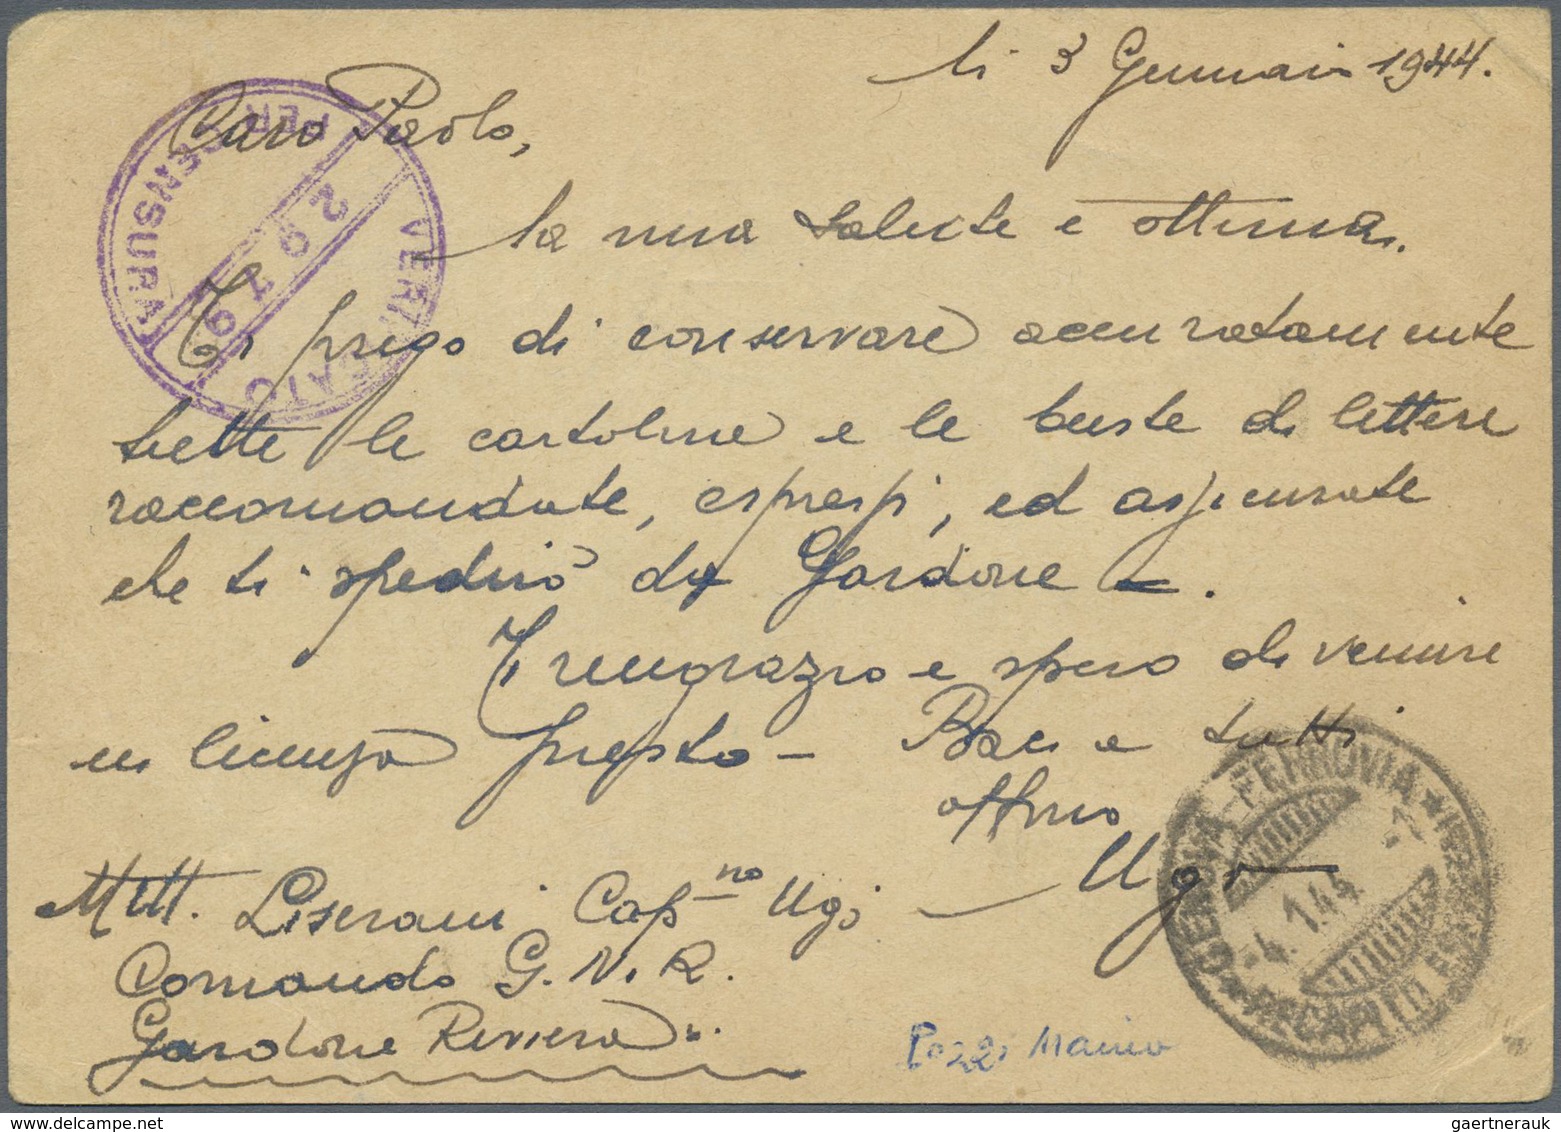 li 3 Gennaio 1944.
Caro Paolo,
la mia salute è ottima.
Ti prego di conservare accuratamente
tutte le cartoline e le buste di lettere
raccomandate, espressi, ed assicurate
che ti spedirò da Gardone.
Ti ringrazio e spero di venire
in licenza presto - Baci a tutti
aff.mo
Ugo
Mitt. Liserani Cap.no Ugo
Comando G.N.R.
Gardone Riviera
Pozzi Mario
VERIFICATO PER CENSURA
29 7 99
GENOVA-FERROVIA
-4.1.44
RECAPITO ESPRESSI
gaertnerauk / delcampe.net